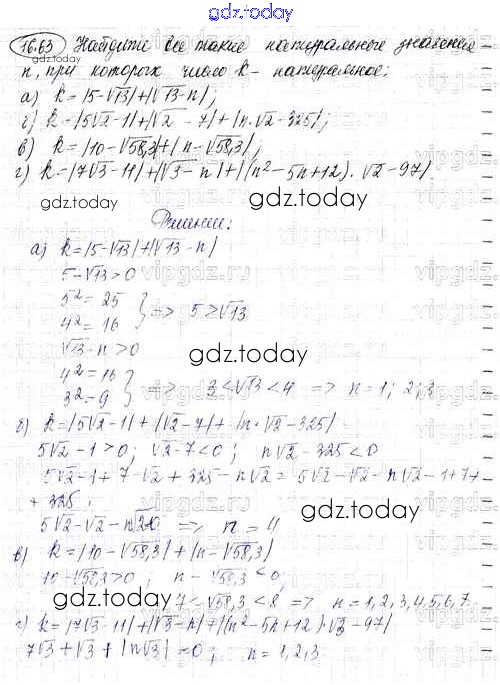 gdz.today
16.63 Найдите все такие натуральные значения
n, при которых число k - натуральное:
gdz.today
а) k=|5-√13|+|√13-n|;
г) k=|5√2-1|+|√2-7|+|n·√2-325|;
в) k=|10-√58,3|+|n-√58,3|;
г) k=|7√3-11|+|√3-n|+|(n²-5n+12)·√2-97|
gdz.today
gdz.today
Решение:
а) k=|5-√13|+|√13-n|
5-√13>0
5²=25
4²=16
=> 5>√13
√13-n>0
gdz.today
4²=16
3²=9
=> 3<√13<4 => n=1; 2; 3
б) k=|5√2-1|+|√2-7|+|n·√2-325|
5√2-1>0; √2-7<0; n√2-325<0
5√2-1+7-√2+325-n√2=5√2-√2-n√2-1+7+
+325;
gdz.today
5√2-√2-n√2=0 => n=4
в) k=|10-√58,3|+|n-√58,3|
10-√58,3>0; n-√58,3<0;
gdz.today
7<√58,3<8 => n=1,2,3,4,5,6,7
г) k=|7√3-11|+|√3-n|+|(n²-5n+12)·√3-97|
7√3+√3+|n√3|=0; n=1,2,3
gdz.today